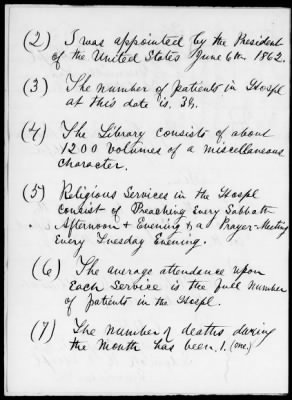 (2) I was appointed by the President
of the United States June 6th 1862.
(3) The number of patients in Hospl
at this date is, 34.
(4) The Library consists of about
1200 volumes of a miscellaneous
character.
(5) Religious Services in the Hospl
consist of Preaching Every Sabbath
Afternoon & Evening & a Prayer-Meeting
Every Tuesday Evening.
(6) The average attendance upon
Each Service is the full number
of patients in the Hospl.
(7) The number of deaths during
the Month has been, 1. (one.)